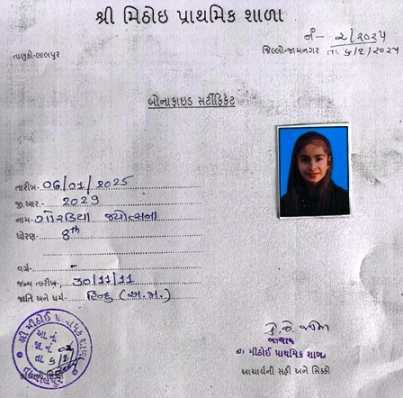 શ્રી મિઠોઇ પ્રાથમિક શાળા
નં- ૨/૨૦૨૫
તાલુકો-લાલપુર
જિલ્લો-જામનગર તા. ૬/૧/૨૦૨૫
બોનાફાઇડ સર્ટીફિકેટ
તારીખ- 06/01/2025
જી.આર.- 2029
નામ- ગોરડિયા જ્યોત્સના
ધોરણ- 8th
વર્ગ-
જન્મ તારીખ, 30/11/11
જાતિ અને ધર્મ- હિન્દુ (અ.જા.)
આચાર્ય
શ્રી મીઠોઈ પ્રાથમિક શાળા
આચાર્યની સહી અને સિક્કો